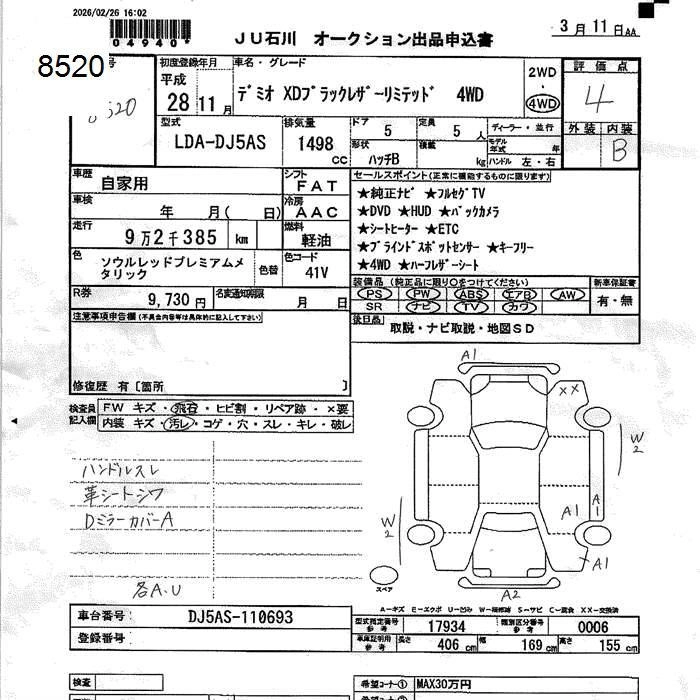 2026/02/26 16:02
04940*
ＪＵ石川　オークション出品申込書
3月11日AA
8520
号
初度登録年月
平成
28 11月
車名・グレード
デミオ XDブラックレザーリミテッド　4WD
2WD
・
4WD
評価点
4
外装 内装
B
型式
LDA-DJ5AS
排気量
1498
cc
ドア
5
定員
5
人
ディーラー・並行
形状
ハッチB
積載
kg
モデル年式
年
ハンドル 左・右
車歴
自家用
シフト
FAT
車検
年　月(　日)
冷房
AAC
走行
9万2千385 km
燃料
軽油
色
ソウルレッドプレミアムメタリック
色替
色コード
41V
R券
9,730円
名変通知期限
月　日
セールスポイント(正常に機能するものに限ります)
★純正ナビ ★フルセグTV
★DVD ★HUD ★バックカメラ
★シートヒーター ★ETC
★ブラインドスポットセンサー ★キーフリー
★4WD ★ハーフレザーシート
装備品（純正品に限り○をつけてください）
PS PW ABS エアB AW
SR ナビ TV カワ
新車保証書
有・無
後日品
取説・ナビ取説・地図SD
注意事項申告欄(不具合内容等は具体的に記入して下さい)
修復歴 有〔箇所　〕
検査員記入欄
FW キズ・飛石・ヒビ割・リペア跡・×要
内装 キズ・汚レ・コゲ・穴・スレ・キレ・破レ
ハンドルスレ
革シートシワ
DミラーカバーA
各A.U
A1
XX
W2
A1
A1
A1
W2
A2
スペア
A－キズ E－エクボ U－凹み W－補修跡 S－サビ C－腐食 XX－交換済
車台番号
DJ5AS-110693
登録番号
型式指定番号
参考
17934
類別区分番号
参考
0006
車庫証明用
参考
長さ
406 cm
幅
169 cm
高さ
155 cm
検査
希望コーナー①
MAX30万円
希望コーナー②